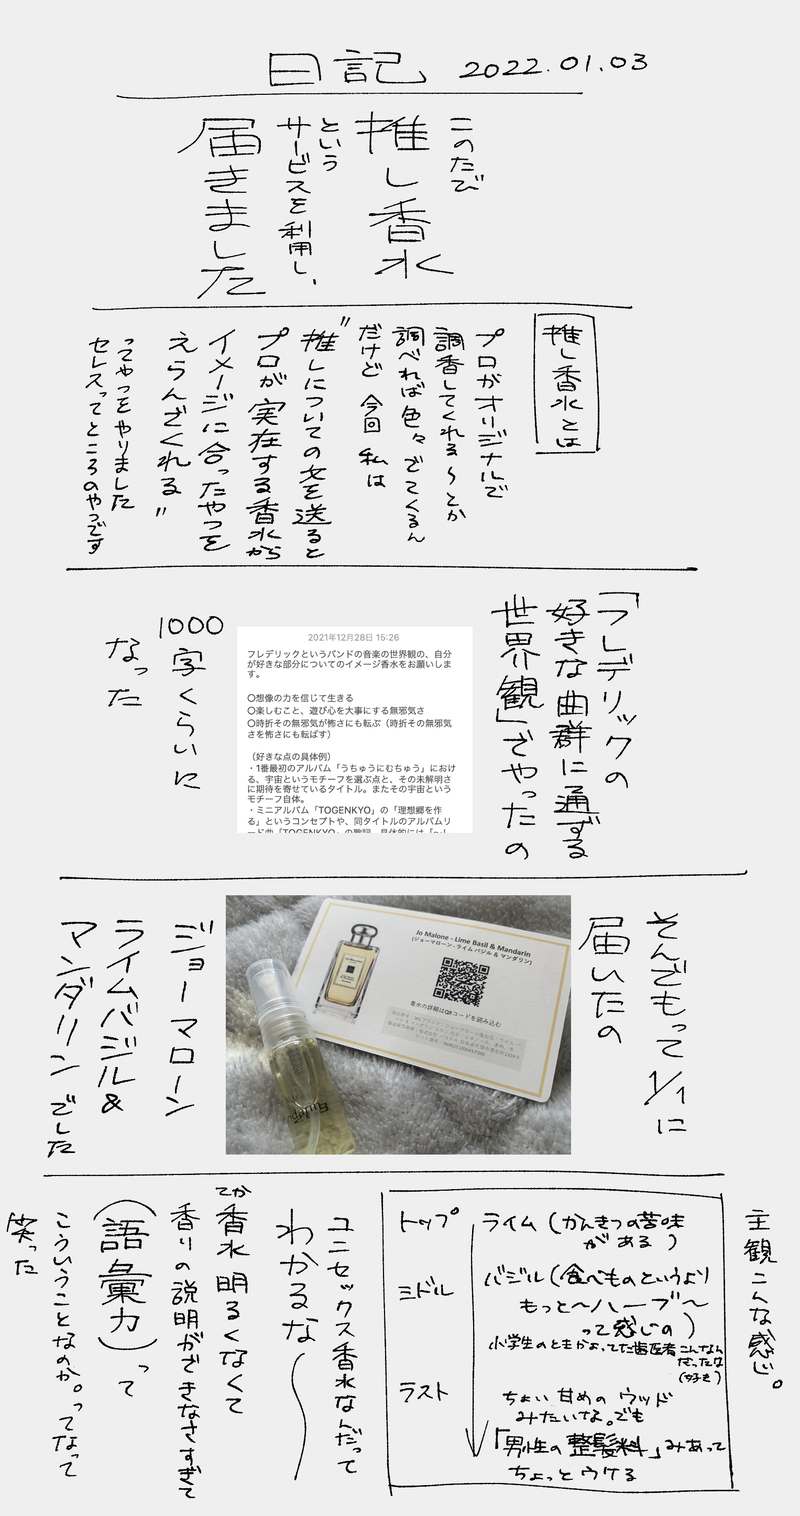 日記 2022.01.03
このたび
推し香水
という
サービスを利用し、
届きました
推し香水とは
プロがオリジナルで
調香してくれる〜とか
調べれば色々でてくるん
だけど 今回 私は
"推しについての文を送ると
プロが実在する香水から
イメージに合ったやつを
えらんでくれる"
ってやつをやりました
セレスってところのやつです
「フレデリックの
好きな曲群に通ずる
世界観」でやったの
2021年12月28日 15:26
フレデリックというバンドの音楽の世界観の、自分
が好きな部分についてのイメージ香水をお願いしま
す。
○想像の力を信じて生きる
○楽しむこと、遊び心を大事にする無邪気さ
○時折その無邪気が怖さにも転ぶ（時折その無邪気
さを怖さにも転ばす）
（好きな点の具体例）
・1番最初のアルバム「うちゅうにむちゅう」におけ
る、宇宙というモチーフを選ぶ点と、その未解明さ
に期待を寄せているタイトル。またその宇宙という
モチーフ自体。
・ミニアルバム「TOGENKYO」の「理想郷を作
る」というコンセプトや、同タイトルのアルバムリ
ード曲「TOGENKYO」の歌詞。具体的には「〜し
1000
字くらいに
なった
そんでもって 1/1に
届いたの
Jo Malone - Lime Basil & Mandarin
(ジョーマローン - ライム バジル & マンダリン)
香水の詳細はQRコードを読み込む
ジョーマローン
ライムバジル&
マンダリンでした
主観こんな感じ。
トップ ライム(かんきつの苦味
がある)
ミドル バジル(食べものというより
もっと〜ハーブ〜
って感じの)
小学生のときかよってた歯医者こんなん
だったな
(好き)
ラスト ちょい甘めのウッド
みたいな。でも
「男性の整髪料」みあって
ちょっとウケる
ユニセックス香水なんだって
わかるな〜
てか香水明るくなくて
香りの説明ができなさすぎて
(語彙力)って
こういうことなのか。ってなって
笑った